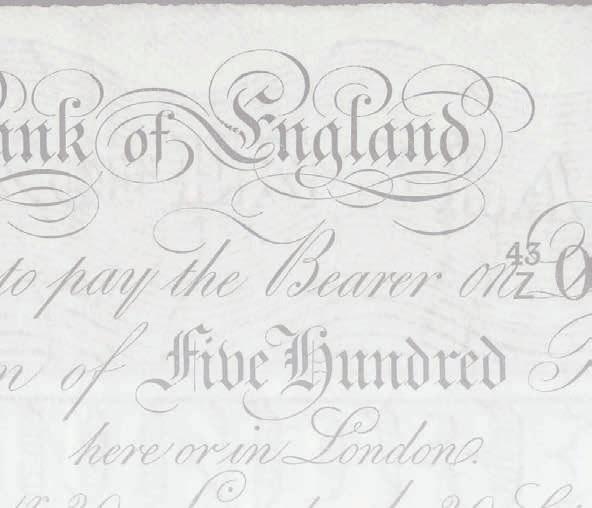 ank of England
to pay the Bearer on 43 Z 0
n of Five Hundred
here or in London.